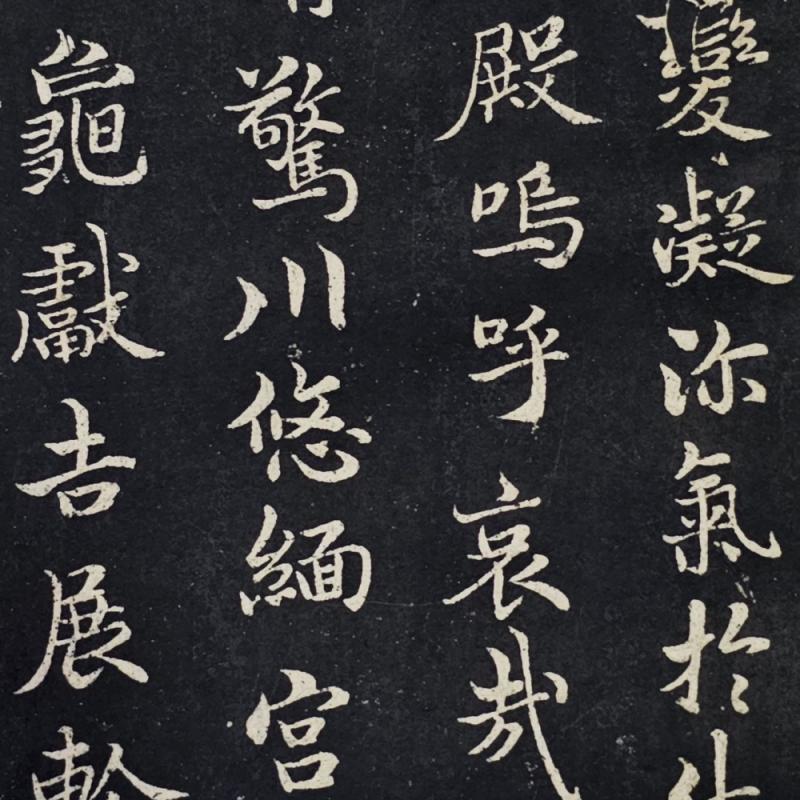 變凝冰氣於
殿嗚呼哀哉
驚川悠緬宮
龜獻吉展軨